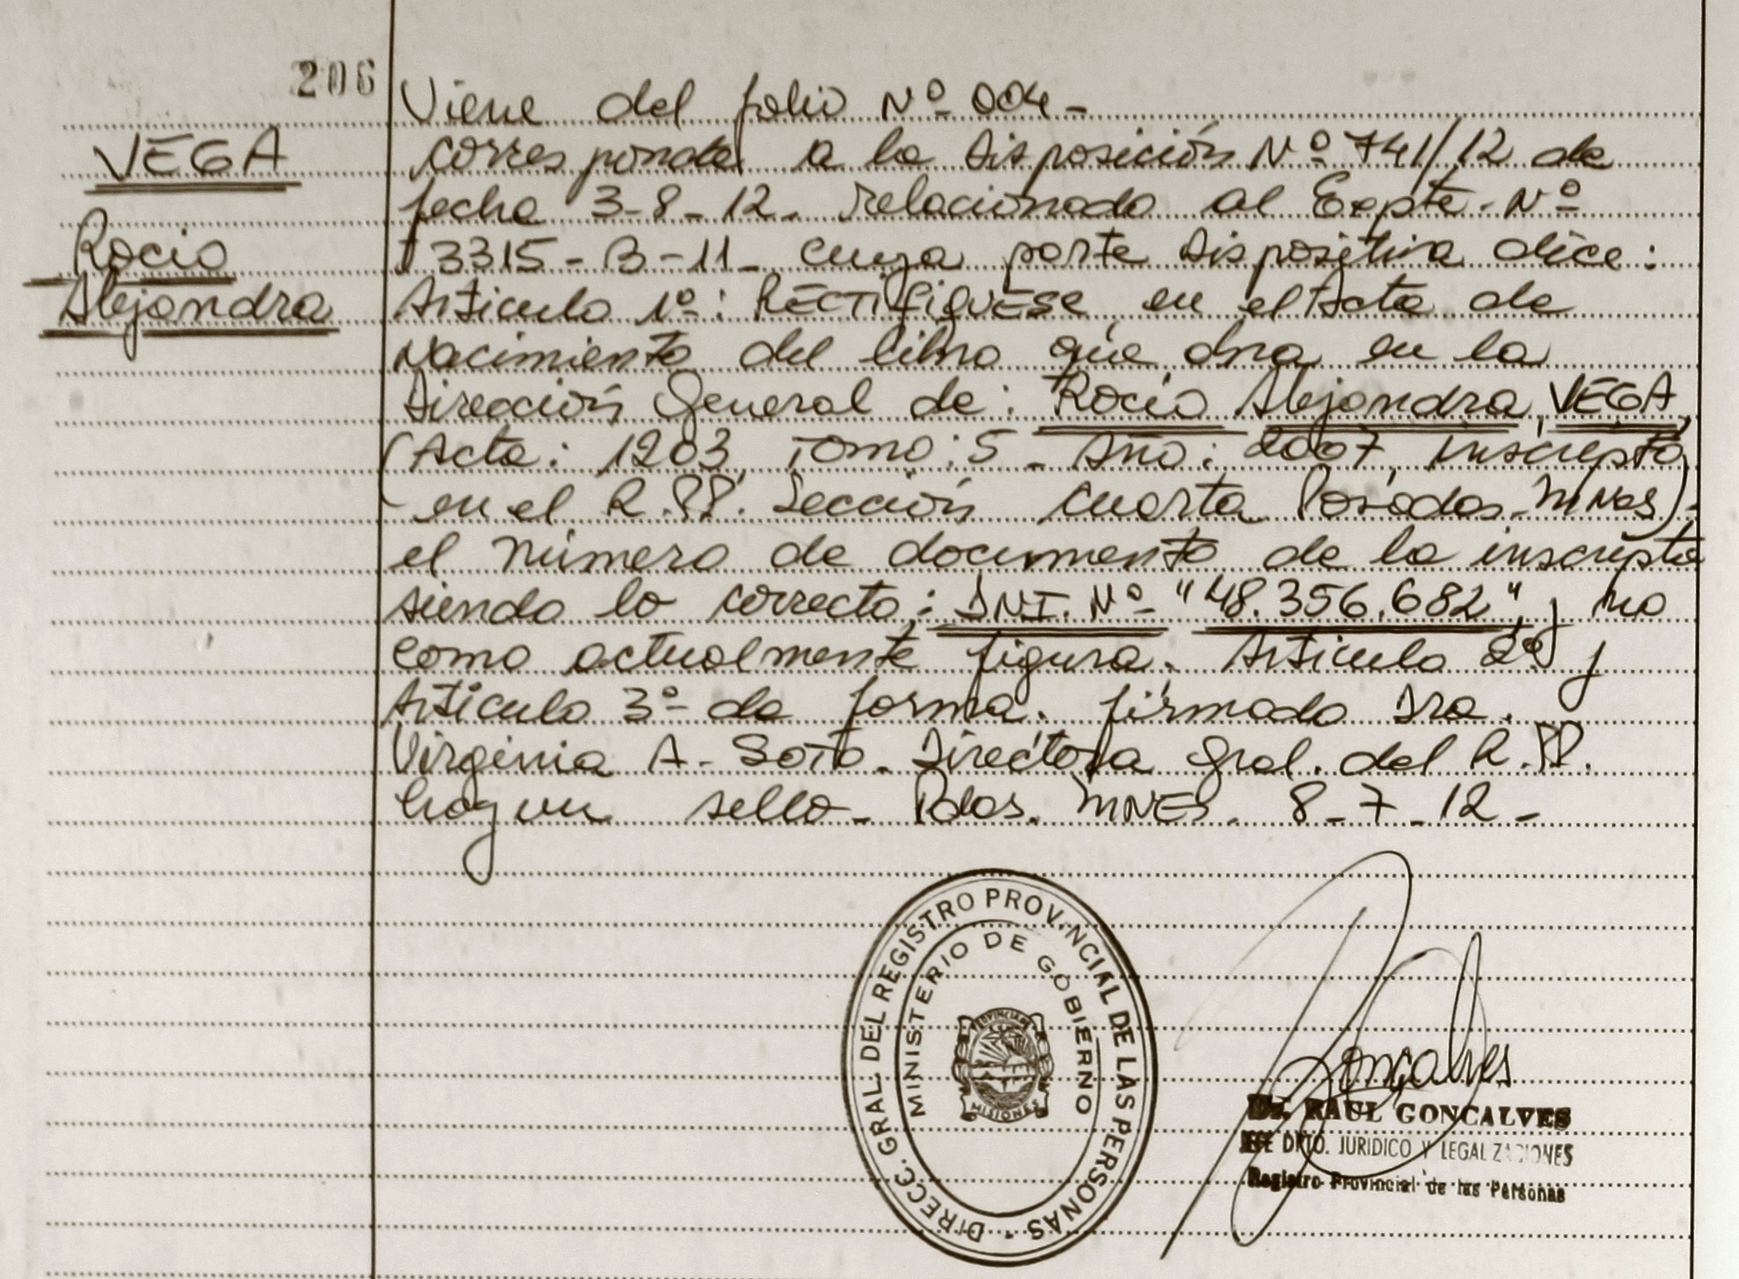 206
VEGA
Rocio
Alejandra
Viene del folio Nº 004-
corresponde a la Disposición Nº 741/12 de
fecha 3-8-12. relacionado al Expte. Nº
3315-B-11- cuya parte Dispositiva dice:
Articulo 1º: RECTIFIQUESE, en el Acta de
Nacimiento del libro que obra en la
Dirección General de: Rocio Alejandra VEGA
(Acta: 1203, Tomo: 5- Año: 2007, inscripta
en el R.PP. Sección Cuarta Posadas-MNes)-
el número de documento de la inscripta
siendo lo correcto: DNI. Nº "48.356.682" y no
como actualmente figura. Articulo 2º y
Articulo 3º de forma. firmado Dra.
Virginia A. Soto. Directora Gral. del R.PP.
hay un sello- Pdas. MNES. 8-7-12-
DIRECC. GRAL. DEL REGISTRO PROVINCIAL DE LAS PERSONAS
MINISTERIO DE GOBIERNO
PROVINCIA
MISIONES
Gonçalves
Dr. RAUL GONCALVES
JEFE DPTO. JURIDICO Y LEGALIZACIONES
Registro Provincial de las Personas